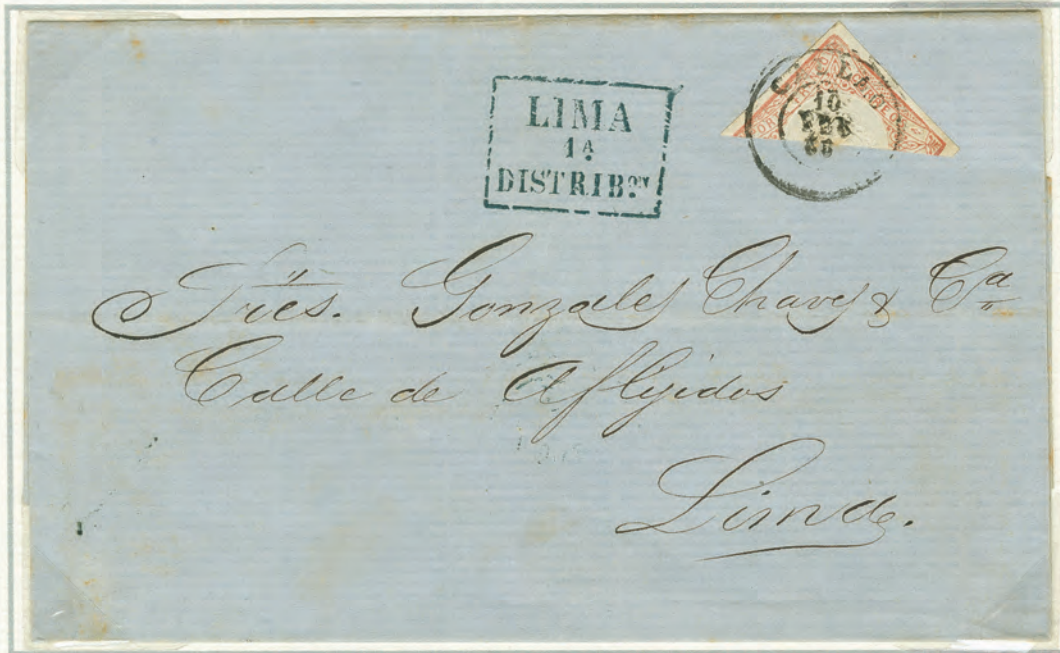 LIMA
1A
DISTRIBON
CALLAO
10
FEB
Sres. Gonzales Chaves & Ca
Calle de Aflijidos
Lima.